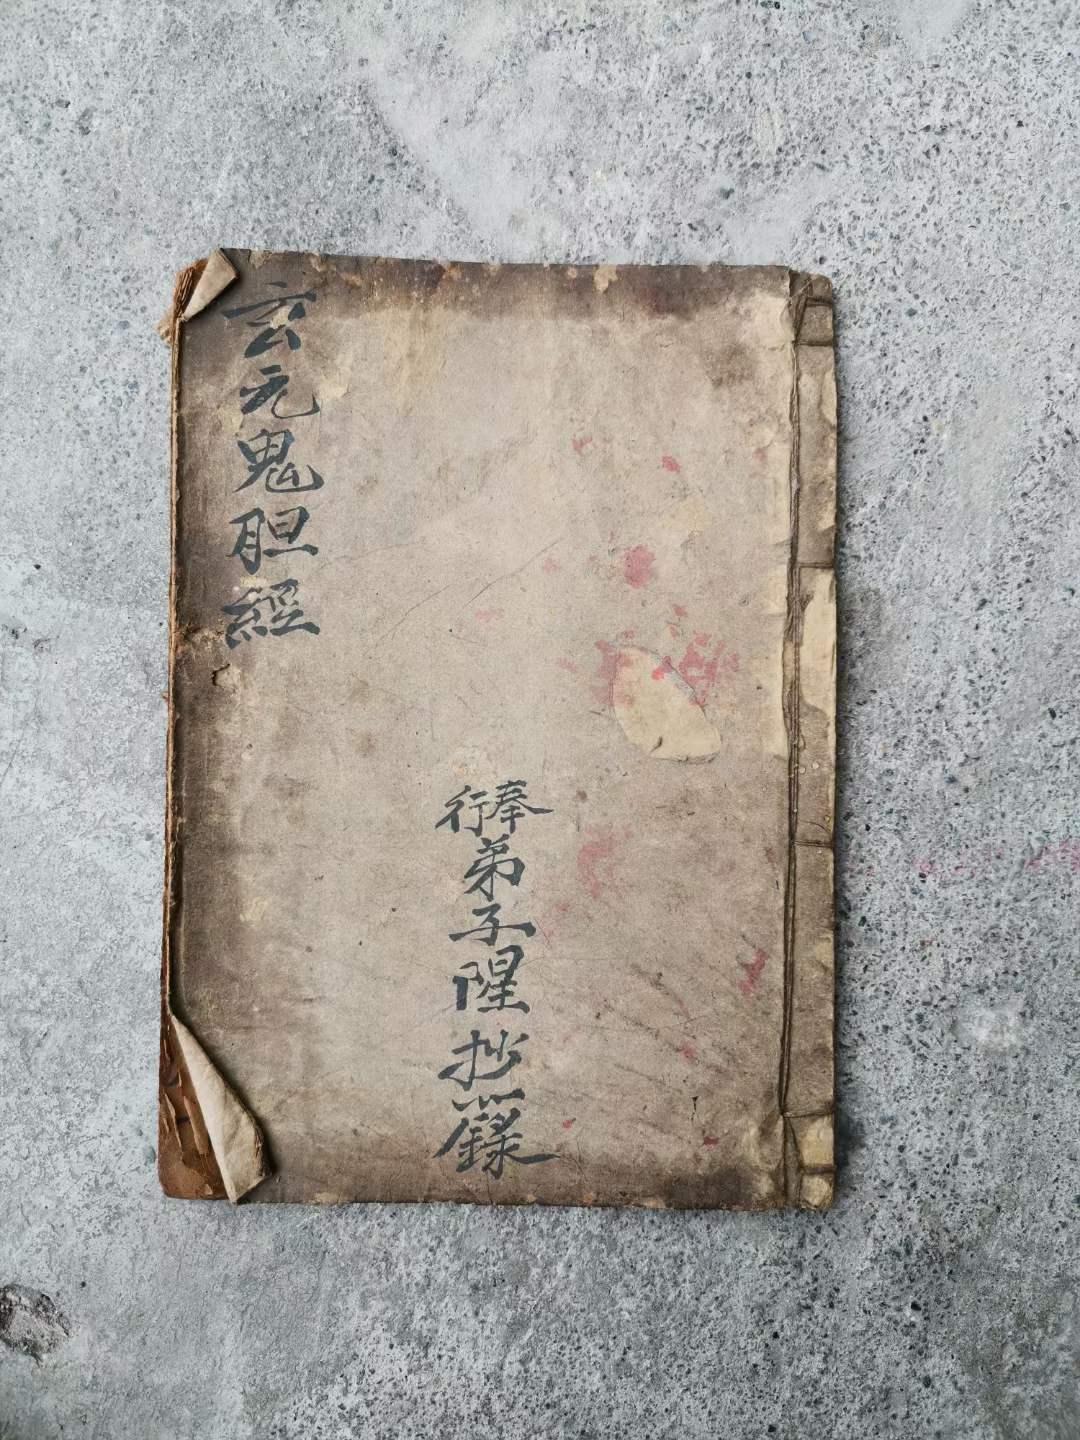 玄元鬼胆經
奉行弟子隍抄籙